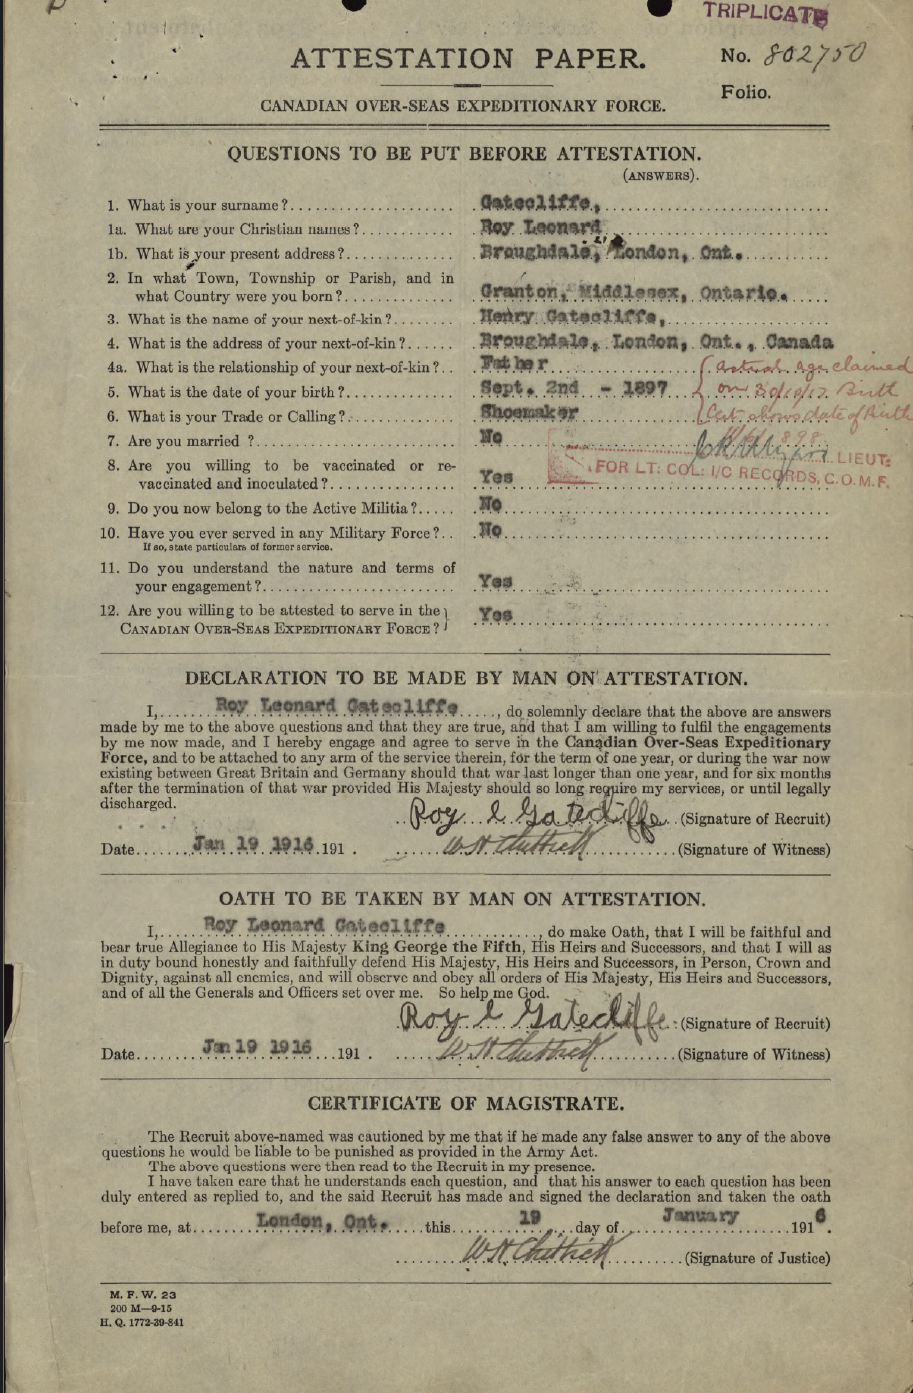 TRIPLICATE
ATTESTATION PAPER.
No. 802750
Folio.
CANADIAN OVER-SEAS EXPEDITIONARY FORCE.
QUESTIONS TO BE PUT BEFORE ATTESTATION.
(ANSWERS).
1. What is your surname?.................... Gatecliffe,
1a. What are your Christian names?............ Roy Leonard
1b. What is your present address?.............. Broughdale, London, Ont.
2. In what Town, Township or Parish, and in
what Country were you born?.............. Granton, Middlesex, Ontario.
3. What is the name of your next-of-kin?........ Henry Gatecliffe,
4. What is the address of your next-of-kin?...... Broughdale, London, Ont., Canada
4a. What is the relationship of your next-of-kin?.. Father
Actual age claimed
5. What is the date of your birth?.............. Sept. 2nd - 1897
on 30/10/17 Birth
6. What is your Trade or Calling?.............. Shoemaker
Cert. shows date of Birth
7. Are you married ?......................... No
8. Are you willing to be vaccinated or re-
vaccinated and inoculated?................ Yes
LIEUT:
FOR LT: COL: I/C RECORDS, C.O.M.F.
9. Do you now belong to the Active Militia?..... No
10. Have you ever served in any Military Force?.. No
If so, state particulars of former service.
11. Do you understand the nature and terms of
your engagement?........................ Yes
12. Are you willing to be attested to serve in the
CANADIAN OVER-SEAS EXPEDITIONARY FORCE? Yes
DECLARATION TO BE MADE BY MAN ON ATTESTATION.
I, Roy Leonard Gatecliffe, do solemnly declare that the above are answers
made by me to the above questions and that they are true, and that I am willing to fulfil the engagements
by me now made, and I hereby engage and agree to serve in the Canadian Over-Seas Expeditionary
Force, and to be attached to any arm of the service therein, for the term of one year, or during the war now
existing between Great Britain and Germany should that war last longer than one year, and for six months
after the termination of that war provided His Majesty should so long require my services, or until legally
discharged.
Roy L Gatecliffe (Signature of Recruit)
Date........Jan 19 1916.191 . (Signature of Witness)
OATH TO BE TAKEN BY MAN ON ATTESTATION.
I, Roy Leonard Gatecliffe, do make Oath, that I will be faithful and
bear true Allegiance to His Majesty King George the Fifth, His Heirs and Successors, and that I will as
in duty bound honestly and faithfully defend His Majesty, His Heirs and Successors, in Person, Crown and
Dignity, against all enemies, and will observe and obey all orders of His Majesty, His Heirs and Successors,
and of all the Generals and Officers set over me. So help me God.
Roy L Gatecliffe (Signature of Recruit)
Date........Jan 19 1916...191 . (Signature of Witness)
CERTIFICATE OF MAGISTRATE.
The Recruit above-named was cautioned by me that if he made any false answer to any of the above
questions he would be liable to be punished as provided in the Army Act.
The above questions were then read to the Recruit in my presence.
I have taken care that he understands each question, and that his answer to each question has been
duly entered as replied to, and the said Recruit has made and signed the declaration and taken the oath
before me, at London, Ont. this 19 day of January 1916.
(Signature of Justice)
M. F. W. 23
200 M—9-15
H. Q. 1772-39-841